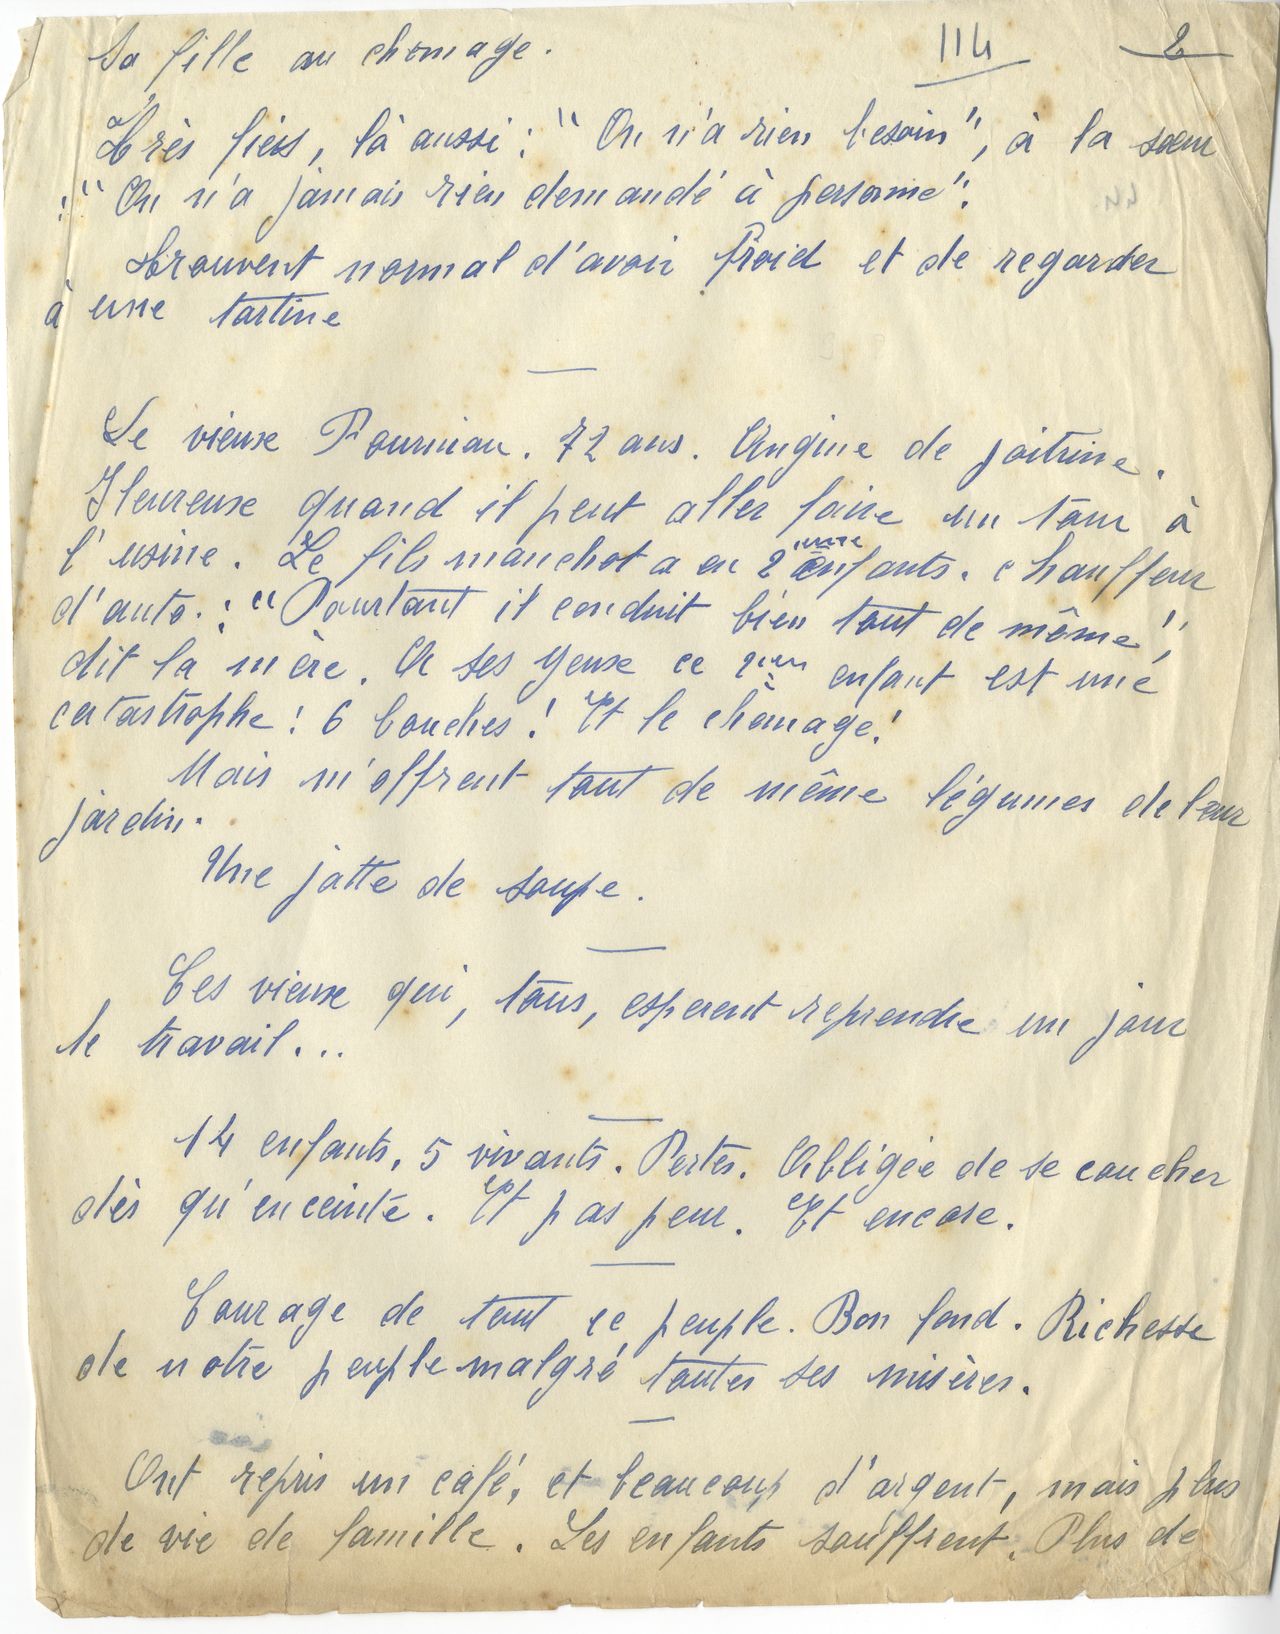 Sa fille au chomage. 114 2
Très fiers, là aussi : "On n'a rien besoin", à la sœur
: "On n'a jamais rien demandé à personne".
Trouvent normal d'avoir froid et de regarder
à une tartine
Le vieux Fourniau. 72 ans. Angine de poitrine.
Heureux quand il peut aller faire un tour à
l'usine. Le fils manchot a eu 2 enfants. chauffeur
d'auto. : "Pourtant il conduit bien tout de même",
dit la mère. A ses yeux ce enfant est une
catastrophe ! 6 bouches ! Et le chômage !
Mais m'offrent tout de même légumes de leur
jardin.
Une jatte de soupe.
Ces vieux qui, tous, esperent reprendre un jour
le travail...
14 enfants, 5 vivants. Pertes. Obligée de se coucher
dès qu'enceinte. Et pas peur. Et encore.
Courage de tout ce peuple. Bon fond. Richesse
de notre peuple malgré toutes ses misères.
Ont repris un café, et beaucoup d'argent, mais plus
de vie de famille. Les enfants souffrent. Plus de